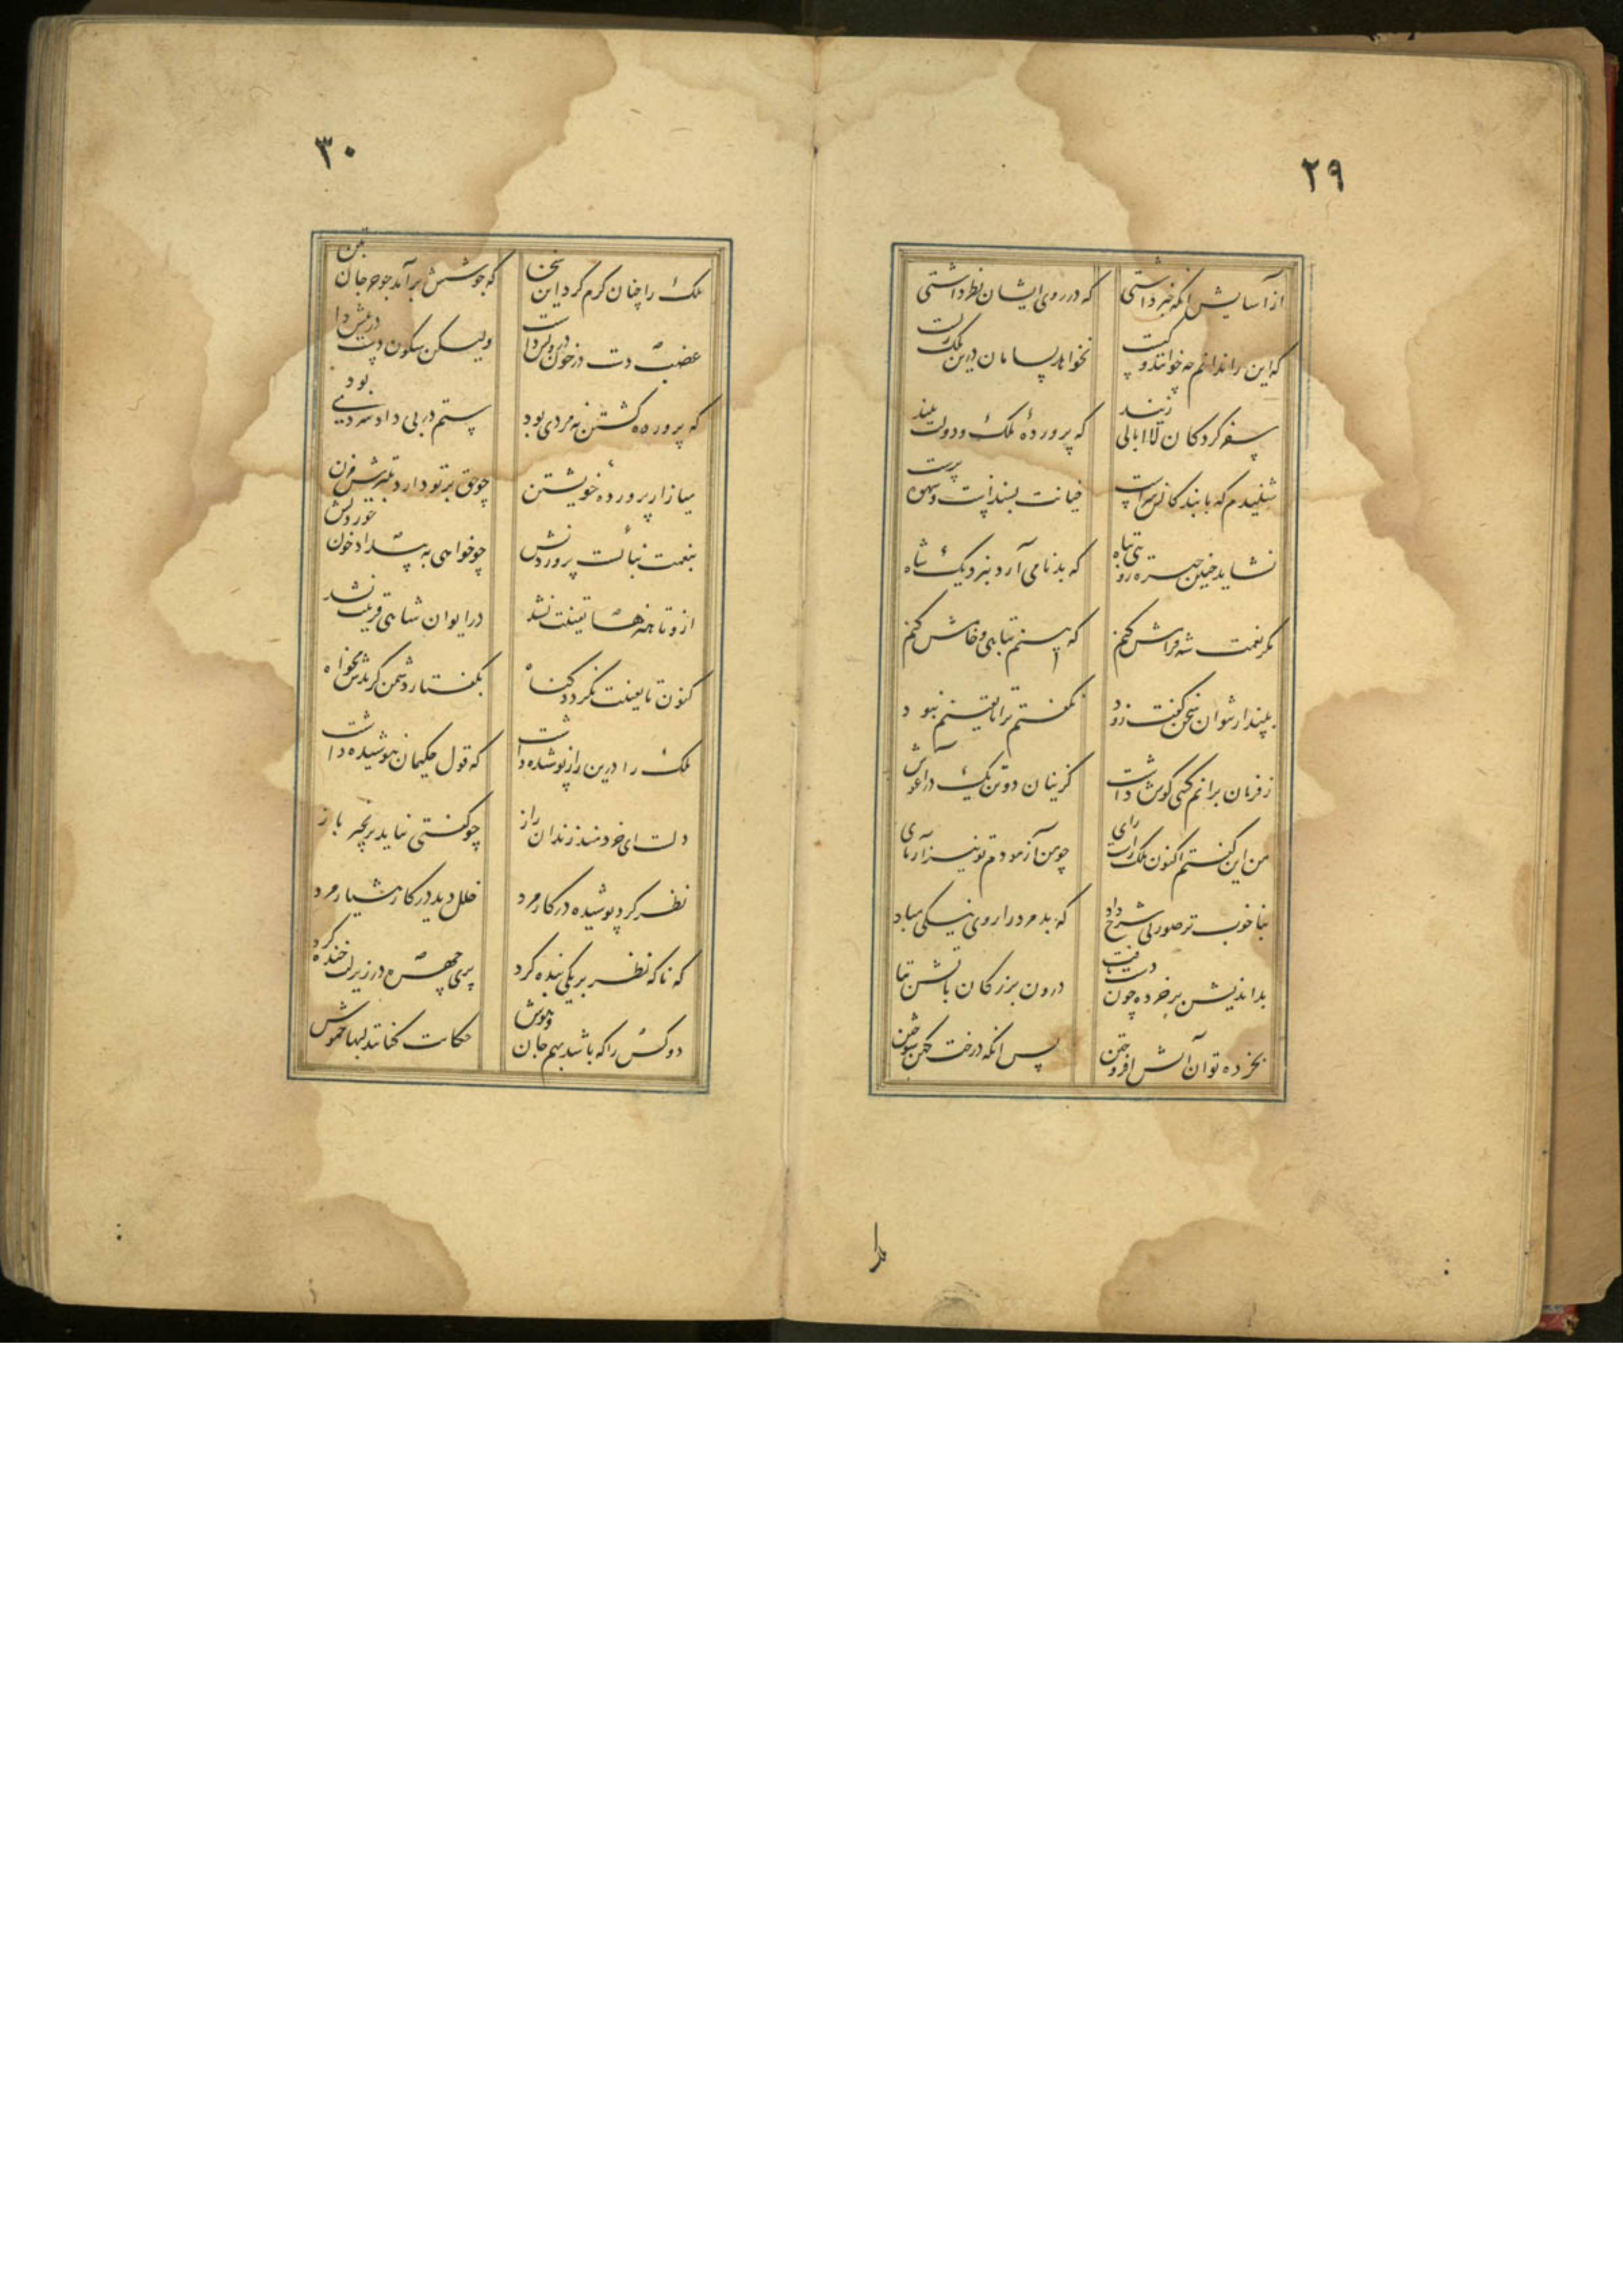 ۲۹
از آسایش آنکه خبر داشتی که در روی ایشان نظر داشتی
که این را ندانم چه خوانند و کیست نخواهد بسامان درین ملک زیست
سفر کردکان لاابالی زیند که پروردهٔ ملک و دولت نیند
شنیدم که با بندکانش سرست خیانت پسندست و شهوت پرست
نشاید چنین خیره روی تباه که بدنامی آرد بنزدیک شاه
مکر نعمت شه فرامش کنم که بینم تباهی و خامش کنم
بپندار نتوان سخن کفت زود نکفتم ترا تا یقینم نبود
ز فرمان برانم کسی کوش داشت کزینان دو تن یک در آغوش
من این کفتم اکنون ملک راست رای چو من آزمودم تو نیز آزمای
بناخوب تر صورتی شرح داد که بد مرد را روی نیکی مباد
بداندیش بر خرده چون دست یافت درون بزرکان باتش بتافت
بخرده توان آتش افروختن پس آنکه درخت کهن سوختن
ملک را
۳۰
ملک را چنان کرم کرد این سخن که جوشش برآمد
غضب دست در خون درویش داشت ولیکن سکون دست در پیش داشت
که پرورده کشتن نه مردی بود ستم در پی داد سردی بود
میازار پروردهٔ خویشتن چو حق بر تو دارد بتیرش مزن
بنعمت نبایست پروردنش چو خواهی به بیداد خون خوردنش
ازو تا هنرها یقینت نشد در ایوان شاهی قرینت نشد
کنون تا یقینت نکردد کناه بکفتار دشمن کزندش مخواه
ملک را درین راز پوشیده داشت که قول حکیمان نیوشیده داشت
دلست ای خردمند زندان راز چو کفتی نیاید بزنجیر باز
نظر کرد پوشیده در کار مرد خلل دید در کار هشیار مرد
که ناکه نظر بر یکی بنده کرد پری چهره در زیر لب خنده کرد
دو کس را که باشد بهم جان و هوش حکایت کنانند لبها خموش